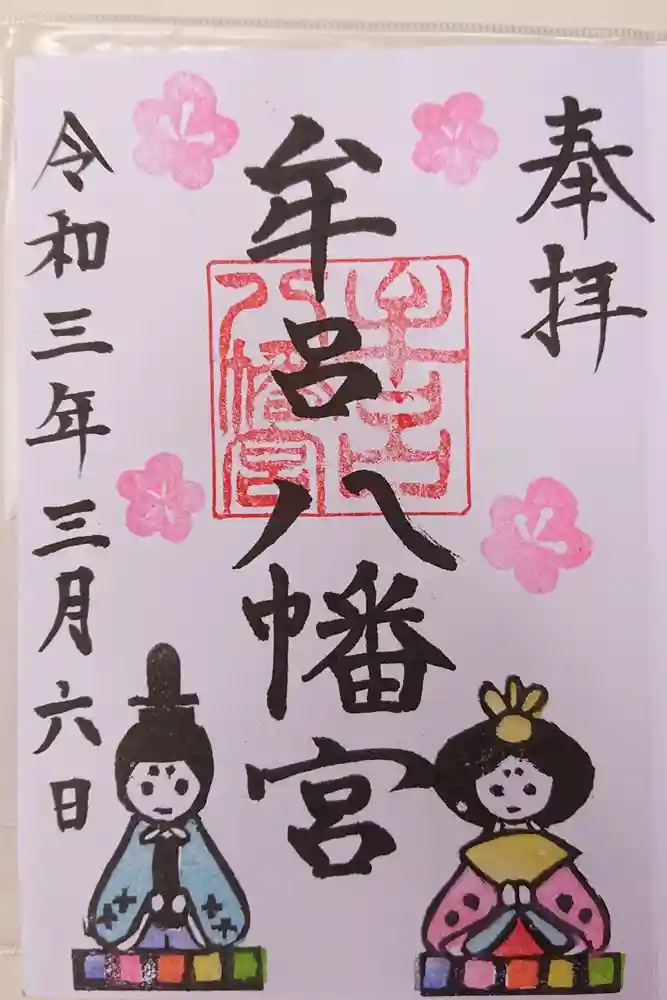 奉拝
牟呂八幡宮
牟呂
八幡宮
令和三年三月六日